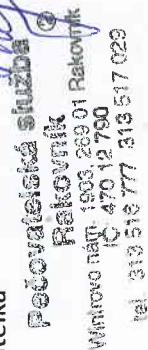 Pečovatelská služba
Rakovník ②
Wintrovo nám. 1903, 269 01 Rakovník
IČ: 470 12 790
tel. 313 516 777 313 517 029